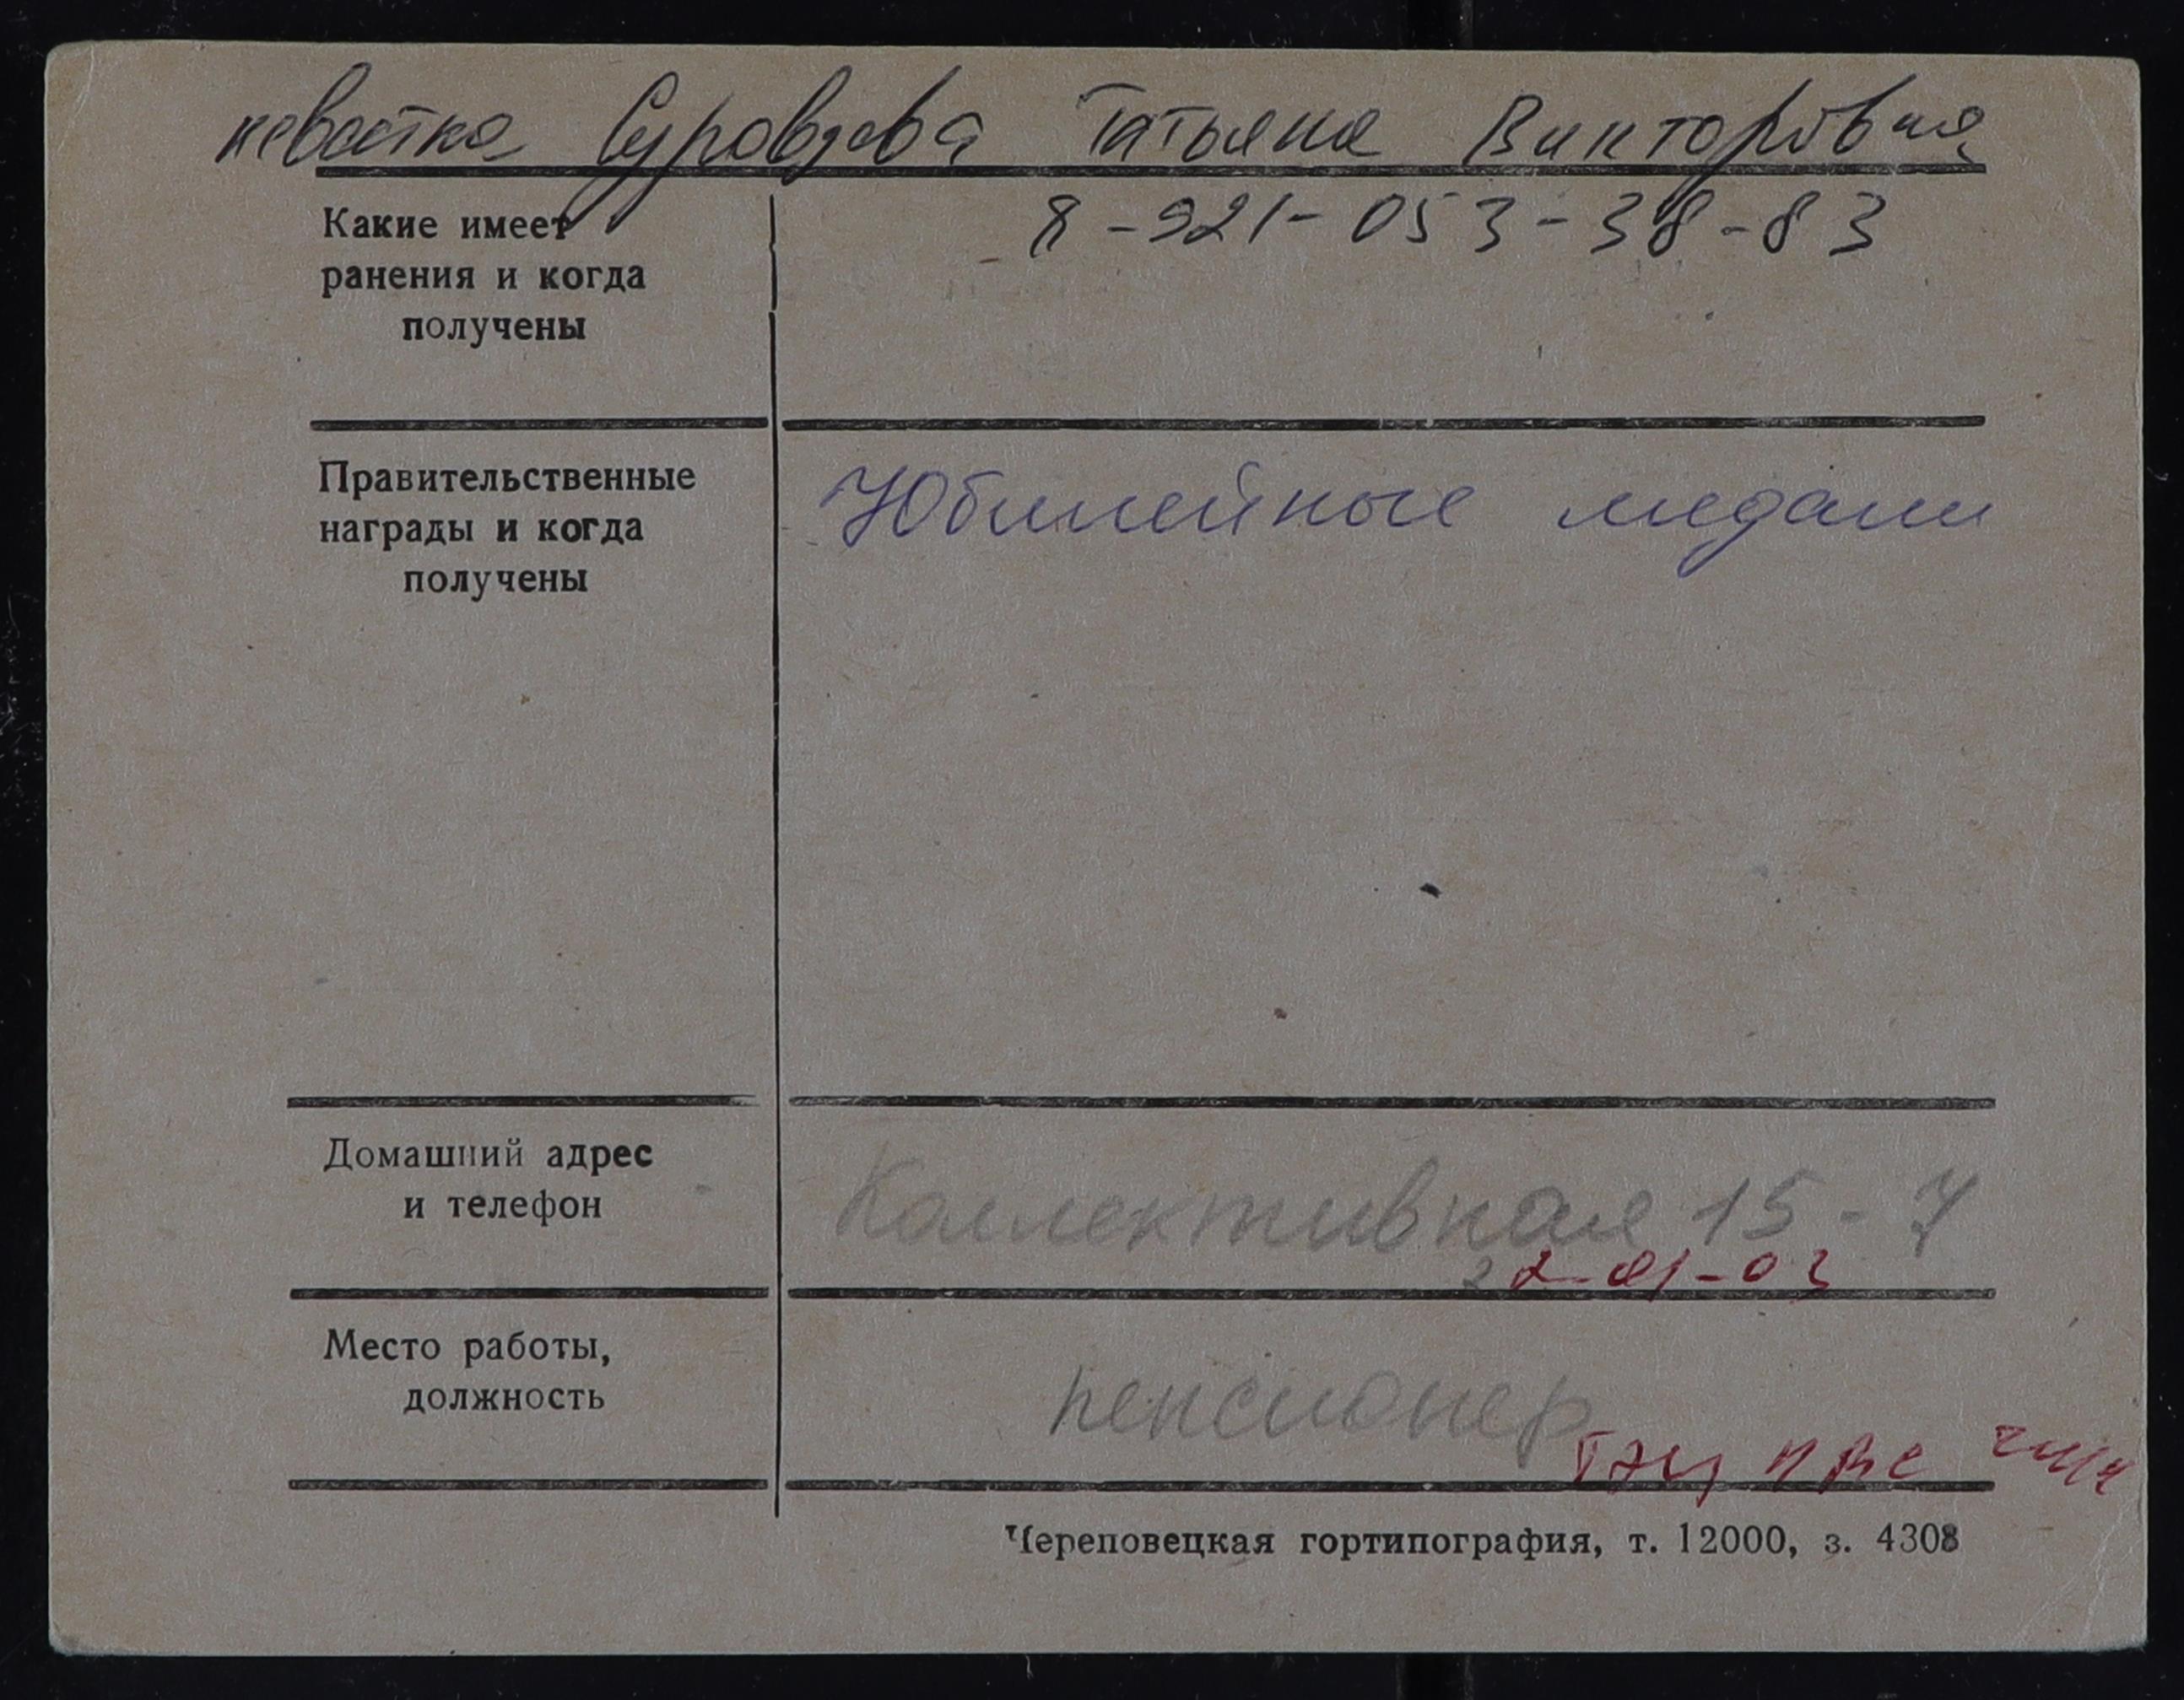 невестка Суровцева Татьяна Викторовна
Какие имеет 8-921-053-38-83
ранения и когда
получены
Правительственные Юбилейные медали
награды и когда
получены
Домашний адрес Коллективная 15-7
и телефон 22-01-03
Место работы,
должность пенсионер
ТЭЦ ПВС
Череповецкая гортипография, т. 12000, з. 4308